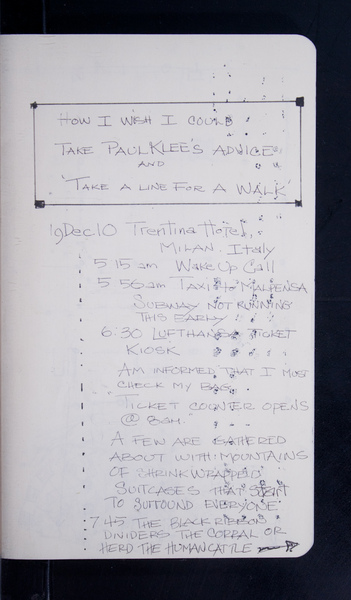 HOW I WISH I COULD
TAKE PAUL KLEE'S ADVICE
AND
'TAKE A LINE FOR A WALK'
19Dec10 Trentina Hotel,
MILAN. Italy
5 15 am Wake Up Call
5 56 am TAXI to MALPENSA
SUBWAY NOT RUNNING
THIS EARLY!
6:30 LUFTHANSA TICKET
KIOSK
AM INFORMED THAT I MUST
CHECK MY BAG.
TICKET COUNTER OPENS
@ 8am.
A FEW ARE GATHERED
ABOUT WITH MOUNTAINS
OF SHRINK WRAPPED
SUITCASES THAT
TO SUTOUND EVERYONE
7 45 THE BLACK RIBBON
DIVIDERS THE CORRAL OR
HERD THE HUMAN CATTLE